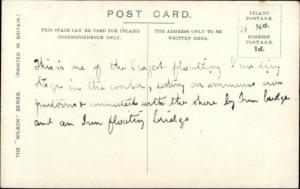 POST CARD.
THIS SPACE CAN BE USED FOR INLAND
CORRESPONDENCE ONLY.
THE ADDRESS ONLY TO BE
WRITTEN HERE.
INLAND
POSTAGE.
½d.
FOREIGN
POSTAGE.
1d.
THE "WILSON" SERIES. (PRINTED IN BRITAIN.)
This is one of the largest floating landing
stage in the world, resting on immense iron
pontoons & connected with the shore by Iron bridge
and an Iron floating bridge